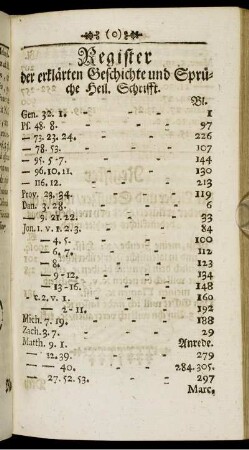 (o)
Register
der erklärten Geschichte und Sprü-
che Heil. Schrifft.
Bl.
Gen. 32. 1. - - 1
Ps. 48. 8. - - 97
— 73. 23. 24. - - 226
— 78. 53. - - 107
— 95. 5-7. - - 144
— 96. 10. 11. - - 130
— 116. 12. - - 213
Prov. 23. 34. - - 119
Dan. 3. 28. - - 6
— 9. 21. 22. - - 33
Jon. 1. v. 1. 2. 3. - - 84
— 4. 5. - - 100
— 6. 7. - - 112
— 8. - - 123
— 9-12. - - 134
— 13-16. - - 148
- c. 2. v. 1. - - 160
— 2-11 - - 192
Mich. 7. 19. - - 188
Zach. 3. 7. - - 29
Matth. 9. 1 - - Anrede.
— 12. 39. - - 279
— — 40. - - 284. 305.
— 27. 52. 53. - - 297
Marc.